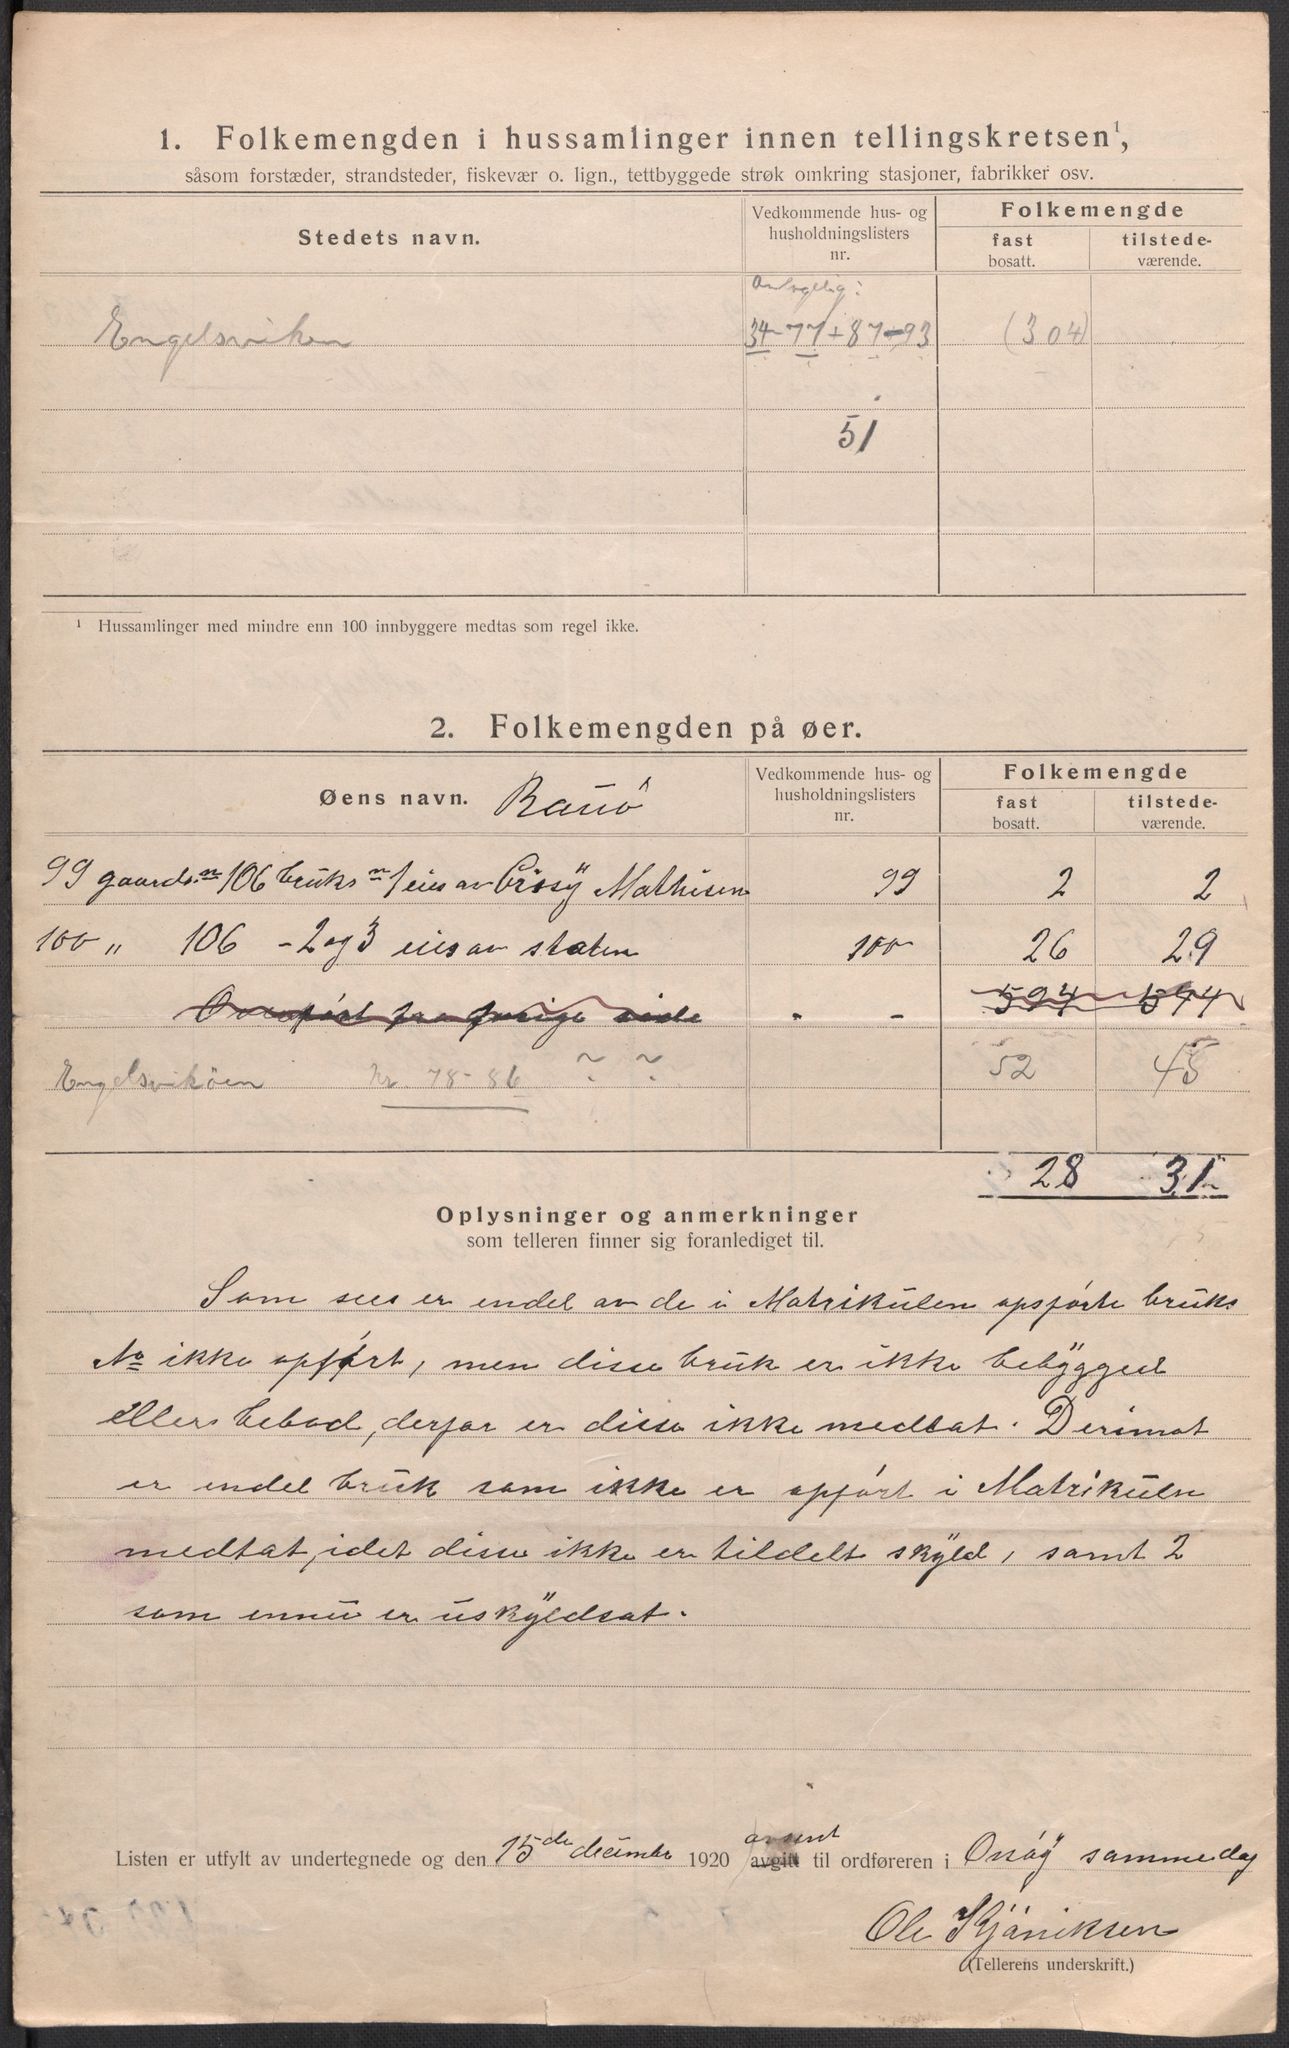 1. Folkemengden i hussamlinger innen tellingskretsen¹,
såsom forstæder, strandsteder, fiskevær o. lign., tettbyggede strøk omkring stasjoner, fabrikker osv.
Stedets navn.
Vedkommende hus- og husholdningslisters nr.
Folkemengde
fast bosatt.
tilstede-værende.
Antagelig:
Engelsviken 34-77+87-93 (304)
51
¹ Hussamlinger med mindre enn 100 innbyggere medtas som regel ikke.
2. Folkemengden på øer.
Øens navn. Rauö
Vedkommende hus- og husholdningslisters nr.
Folkemengde
fast bosatt.
tilstede-værende.
99 gaards nr 106 bruks nr 1 eies av Mathisen 99 2 2
100 " 106 - 2 og 3 eies av staten 100 26 29
Overført fra forrige side - - 594 594
Engelsviköen Nr. 78-86 ~ ~ 52 48
28 31
Oplysninger og anmerkninger
som telleren finner sig foranlediget til.
Som sees er endel av de i Matrikülen opførte bruks
No ikke opført, men disse bruk er ikke bebygged
eller bebod, derfor er disse ikke medtat. Derimot
er endel bruk som ikke er opført i Matrikülen
medtat, idet disse ikke er tildelt skyld, samt 2
som ennu er uskyldsat.
Listen er utfylt av undertegnede og den 15de decembr 1920 avgitt avsent til ordføreren i Onsöy sammedag
Ole Kjöniksen
(Tellerens underskrift.)